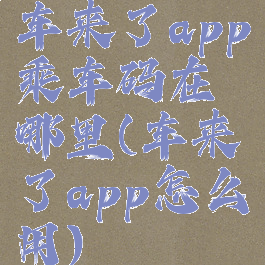 车来了app
乘车码在
哪里(车来
了app怎么
用)